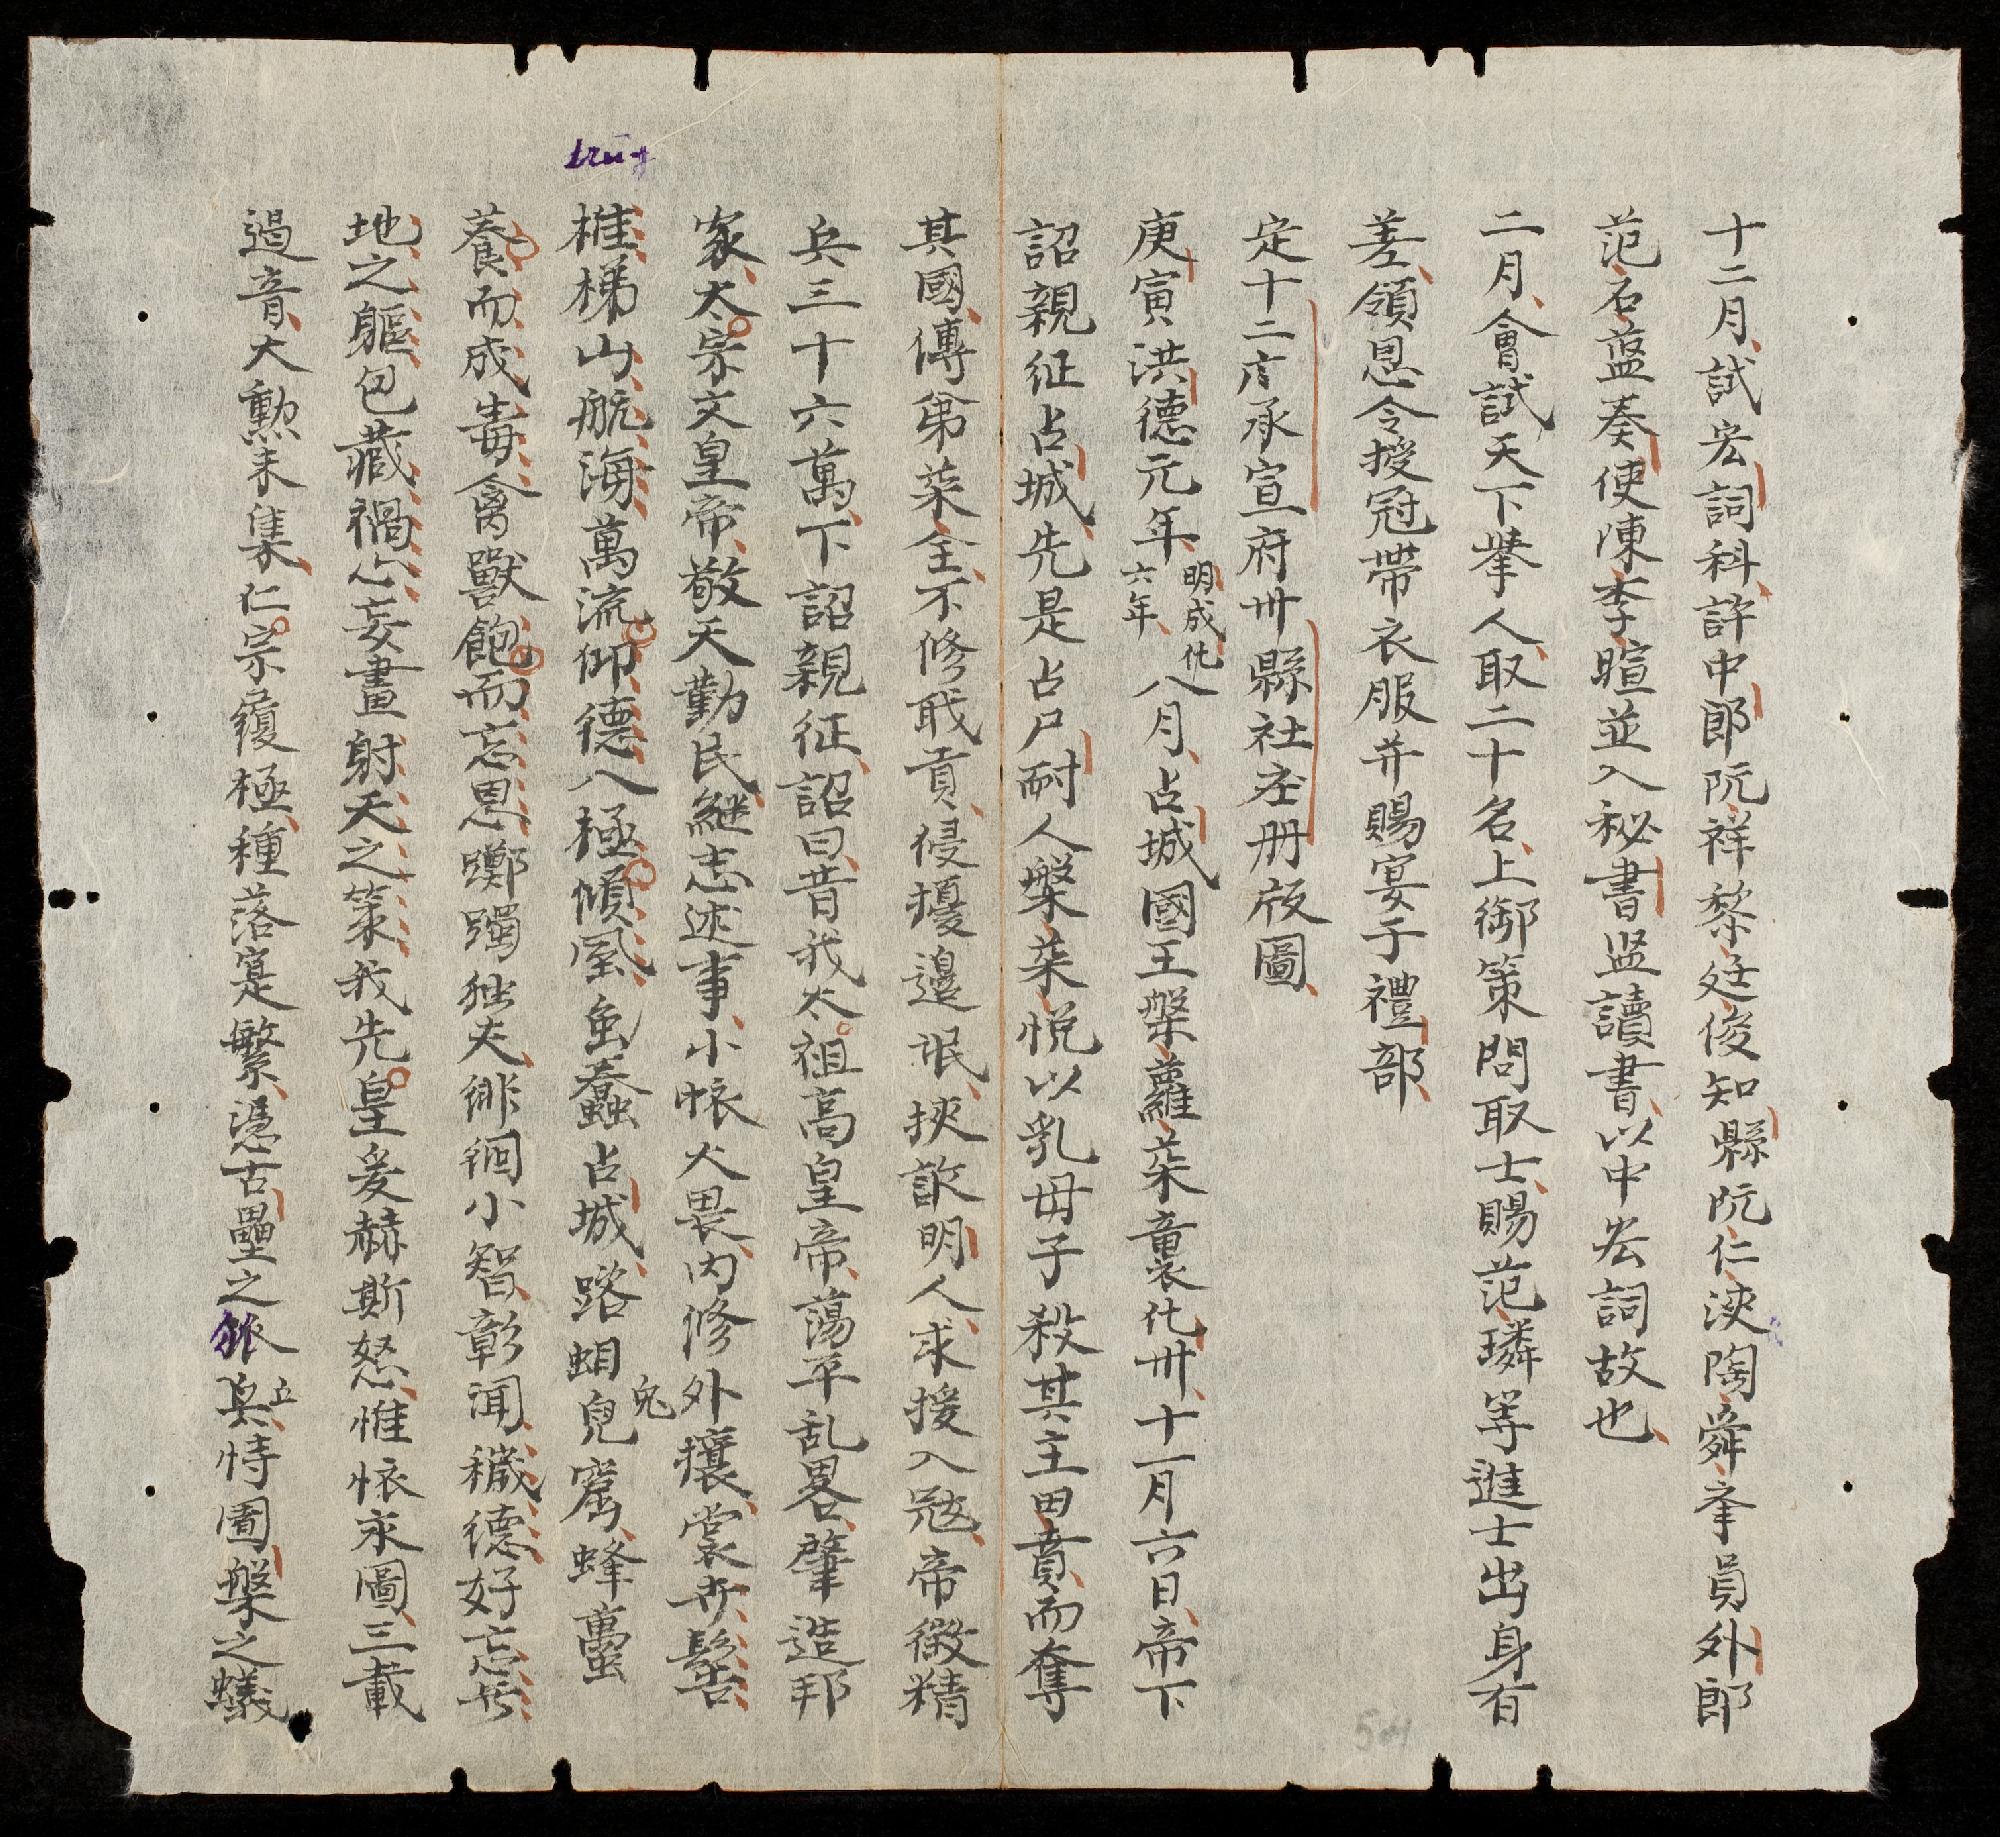 十二月試宏詞科許中郎阮祥黎廷俊知縣阮仁浹陶舜峯員外郎
范石盤奏使陳李暄並入秘書监讀書以中宏詞故也
二月會試天下舉人取二十名上御策問取士賜范璘等進士出身有
差領恩令授冠帶衣服并賜宴于禮部
定十二處承宣府州縣社庄册版圖
庚寅洪德元年明成化六年八月占城國王槃蘿茶童襲化州十一月六日帝下
詔親征占城先是占尸耐人槃茶悅以乳毋子殺其主田賁而奪
其國傳弟茶全不修职貢侵擾邊氓挾詐明人求援入寇帝徵精
兵三十六萬下詔親征詔曰昔我太祖高皇帝蕩平乱畧肇造邦
家太宗文皇帝敬天勤民継志述事小懷大畏内修外攘裳卉髻
椎梯山航海萬流仰德八極傾風兔蠢占城路蛆兒兔窟蜂蠆
養而成毒禽獸飽而忘恩躑躅独夫徘徊小智彰闻穢德好忘
地之軀包藏禍心妄畫射天之策我先皇爰赫斯怒惟懷永圖三載
遏音大勲未集仁宗履極種落寔繁憑古壘之狼兵立恃圖槃之蟻